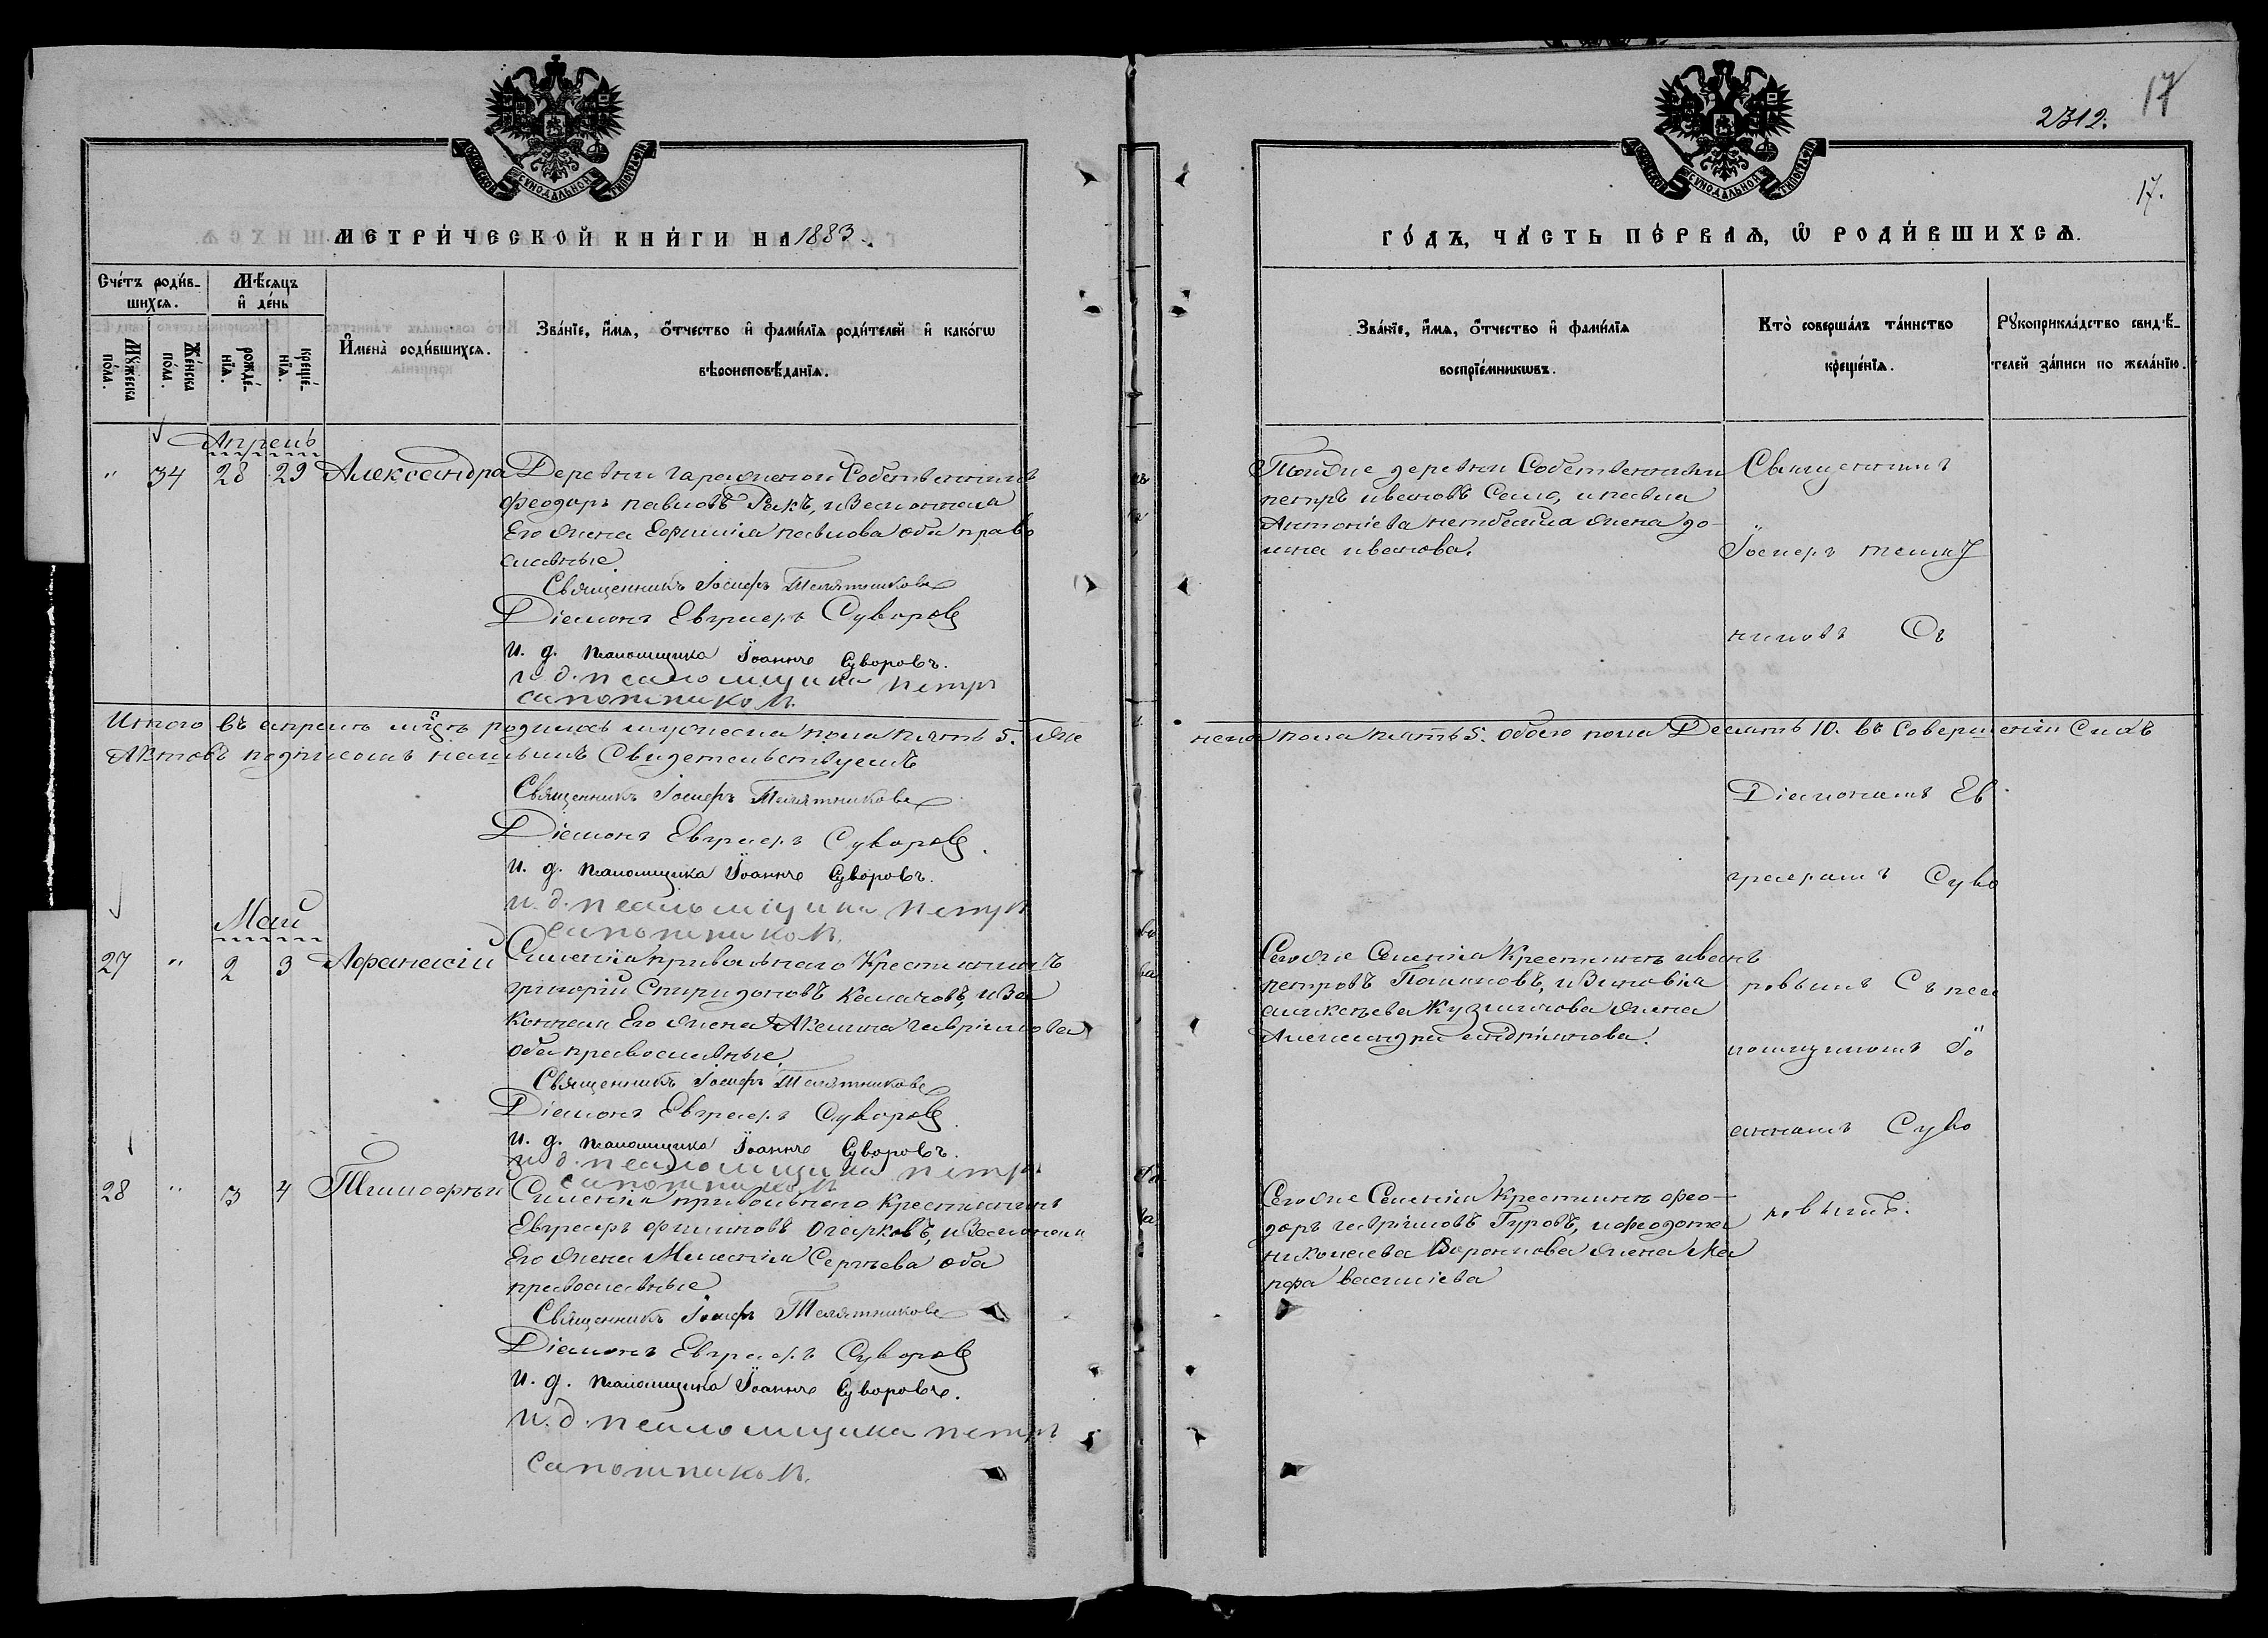 МОСКОВСКОЙ СѴНОДАЛЬНОЙ ТИПОГРАФІИ
МЕТРИ́ЧЕСКОЙ КНИ́ГИ НА 1883.
Сче́тъ роди́в-
шихсѧ.
Мѣ́сѧцъ
и҆ де́нь
Мꙋ́жеска
по́ла.
Же́нска
по́ла.
рожде́-
нїѧ.
креще́-
нїѧ.
И҆мена̀ роди́вшихсѧ.
Зва́нїе, и҆́мѧ, ѻ҆́тчество и҆ фами́лїѧ роди́телей и҆ како́гѡ
вѣроисповѣ́данїѧ.
Апрель
" 34 28 29 Александра
Деревни Собственникъ
Феодоръ Павловъ Ракъ, и Законная
Его жена Ефимія Павлова оба право
славные
Священникъ Іосифъ Телятниковъ
Діаконъ Евграфъ Суворовъ
И. д. псаломщика Іоаннъ Суворовъ.
и. д. псаломщика петръ
сапожниковъ.
Итого въ апрелѣ мѣсцѣ родилось мужеска пола пять 5. Же
Актовъ подписомъ нашимъ Свидетельствуемъ
Священникъ Іосифъ Телятниковъ
Діаконъ Евграфъ Суворовъ.
И. д. псаломщика Іоаннъ Суворовъ.
и. д. псаломщика петръ
сапожниковъ.
Май
27 " 2 3 Афанасій
Селенія привольнаго Крестьянинъ
григорій Спиридоновъ Калачовъ, и За
конная Его жена Акелина гаврилова
оба православные
Священникъ Іосифъ Телятниковъ
Діаконъ Евграфъ Суворовъ.
И. д. псаломщика Іоаннъ Суворовъ.
и. д. псаломщика петръ
сапожниковъ
28 " 3 4 Тимофѣй
Селенія привольнаго крестьянинъ
Евграфъ филиповъ Огарковъ, и Законная
Его жена Меланія Сергѣева оба
православные
Священникъ Іосифъ Телятниковъ
Діаконъ Евграфъ Суворовъ
И. д. псаломщика Іоаннъ Суворовъ.
и. д. псаломщика петръ
сапожниковъ.
2312. 17
17.
МОСКОВСКОЙ СѴНОДАЛЬНОЙ ТИПОГРАФІИ
ГО́ДЪ, ЧА́СТЬ ПЕ́РВАѦ, Ѡ҆ РОДИ́ВШИХСѦ.
Зва́нїе, и҆́мѧ, ѻ҆́тчество и҆ фами́лїѧ
воспрїе́мникѡвъ.
Кто̀ соверша́лъ та́инство
креще́нїѧ.
Рꙋкоприкла́дство свидѣ́-
телей за́писи по жела́нїю.
Тойже деревни Собственники
петръ ивановъ Сало, и павла
Антоніева жена до-
мна иванова.
Священникъ
Іосифъ телят
никовъ Съ
неска пола пять 5. обоего пола Десять 10. въ Совершеніи Сихъ
Діакономъ Ев
графомъ Суво
Тогоже Селенія Крестьяне иванъ
петровъ, и Зиновія
аликсѣева Кузмичова жена
Александра андріянова.
ровымъ Съ псал
ломщикомъ Іо
анномъ Суво
Тогоже Селенія Крестьяне фео-
доръ гавриловъ Гуровъ, и феодота
николаева Воронкова жена Ма
рфа василіева
ровымъ.